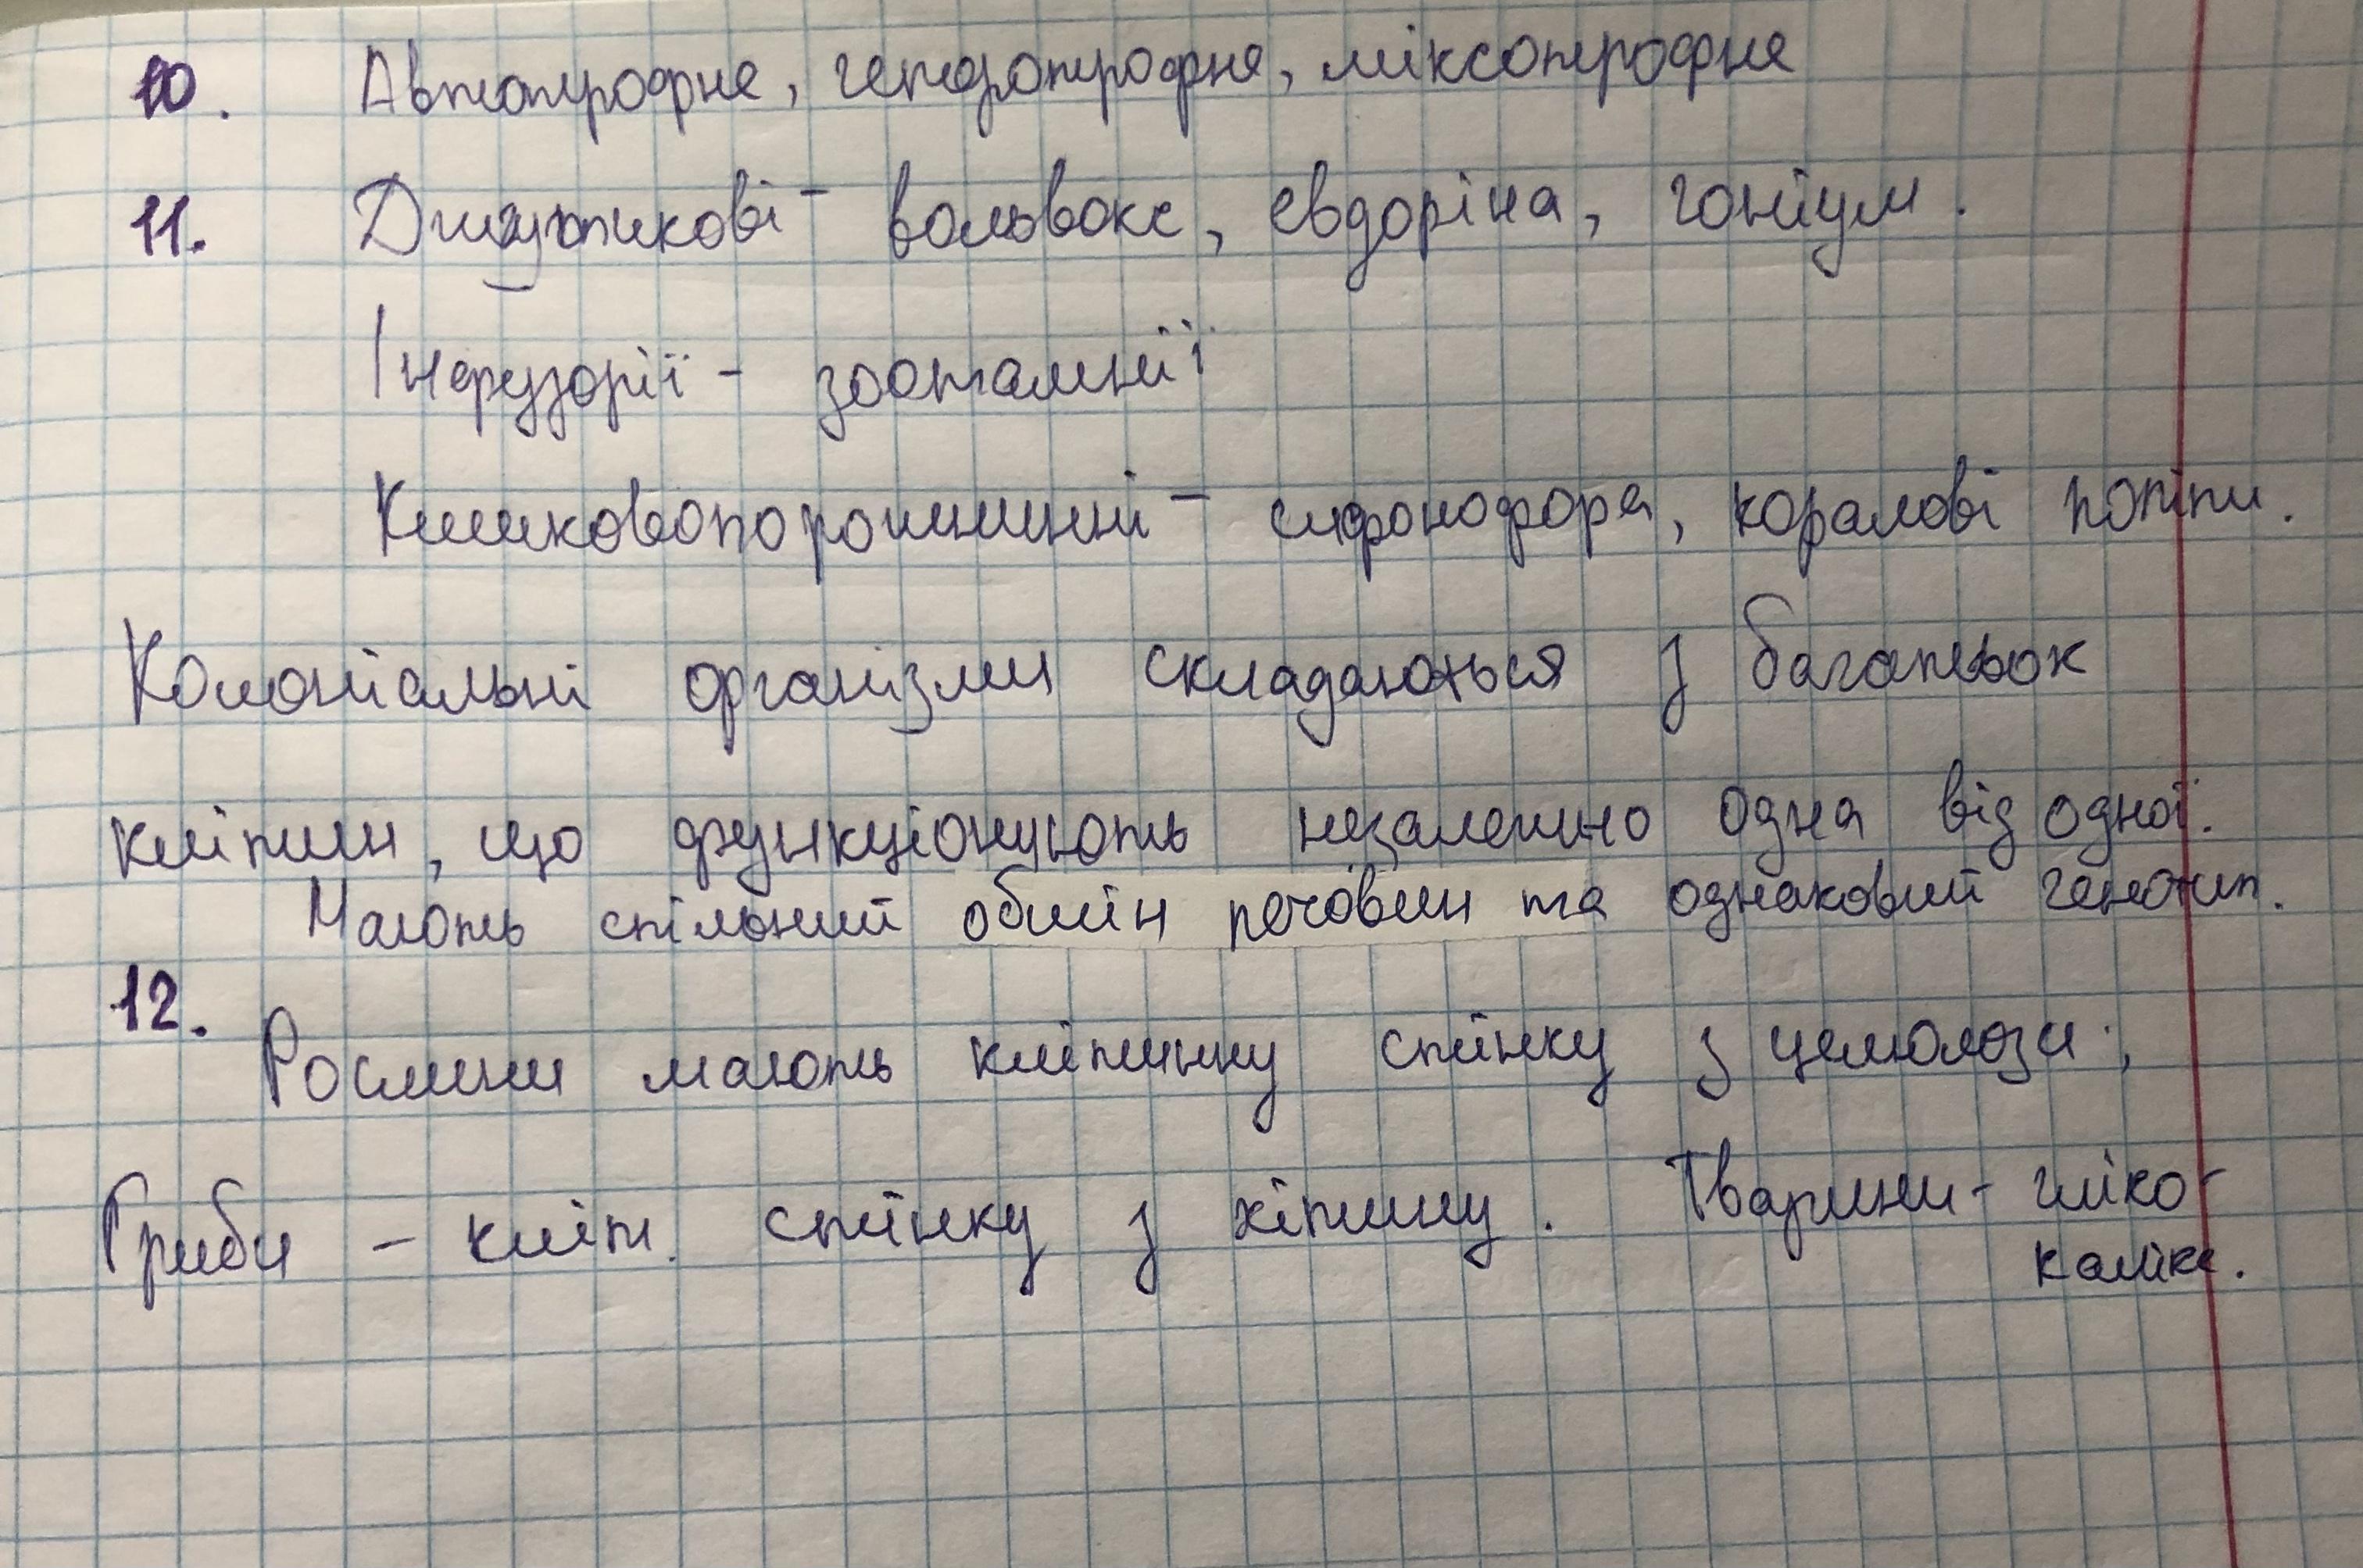 10. Автотрофне, гетеротрофне, міксотрофне
11. Джгутикові - вольвокс, евдоріна, гоніум.
Інфузорії - зоотамнії
Кишковопорожнинні - сифонофора, коралові поліпи.
Колоніальні організми складаються з багатьох
клітин, що функціонують незалежно одна від одної.
Мають спільний обмін речовин та однаковий генотип.
12.
Рослини мають клітинну стінку з целюлози;
Гриби - кліт. стінку з хітину. Тварини - гліко-
калікс.